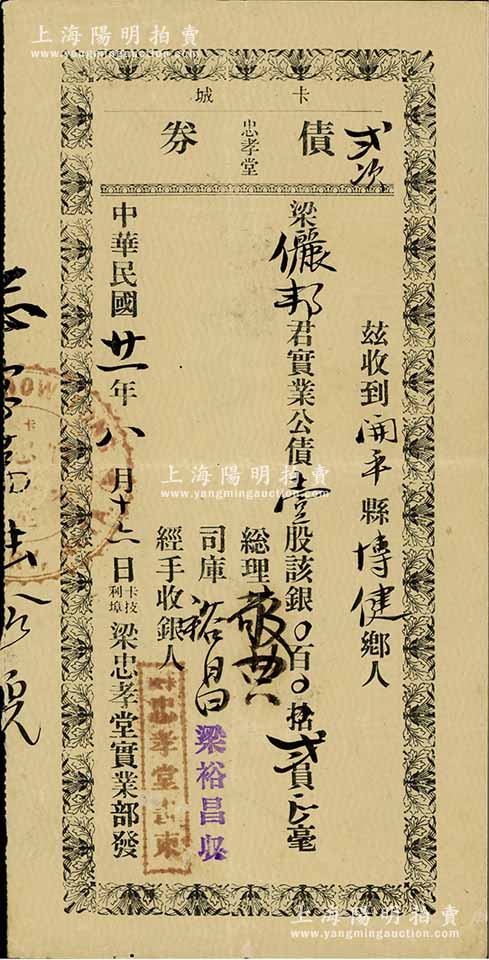 上海陽明拍賣
www.yangmingauction.com
卡城
忠孝堂
債券
弍次
茲收到開平縣博健鄉人
梁儼邦君實業公債壹股該銀0百0拾弍員正毫
總理敬典
司庫裕昌
經手收銀人
梁裕昌収
中華民國廿一年八月十六日卡技利埠梁忠孝堂實業部發
上海陽明拍賣
www.yangmingauction.com
上海陽明拍賣
www.yangmingauction.com